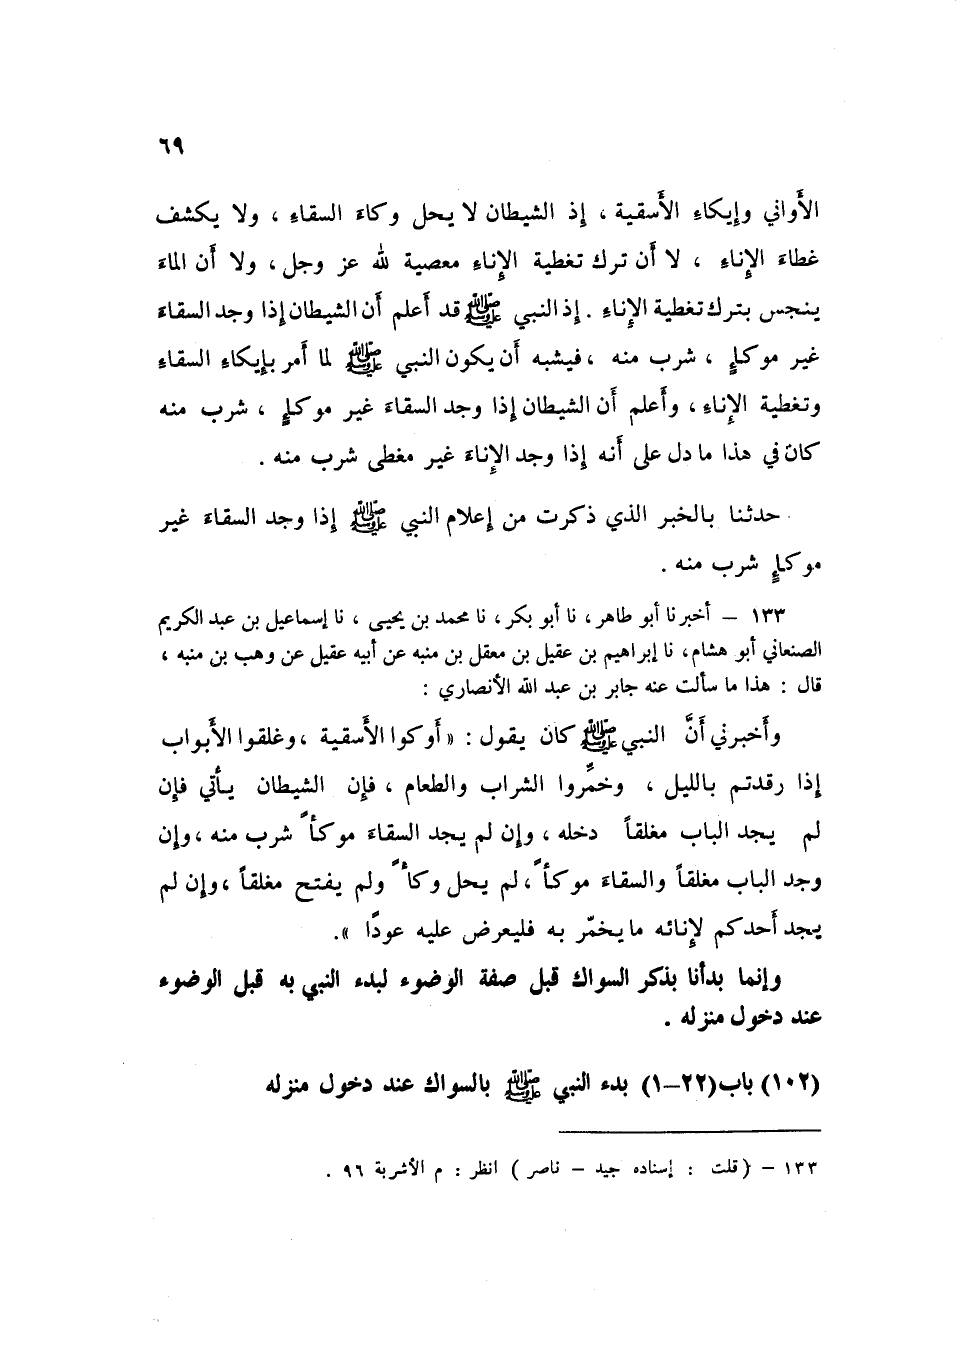 ٦٩
الأَواني وإيكاءِ الأَسقية ، إذ الشيطان لا يحل وكاءَ السقاءِ ، ولا يكشف
غطاءَ الإِناءِ ، لا أَن ترك تغطية الإِناءِ معصية لله عز وجل ، ولا أَن الماءَ
ينجس بترك تغطية الإِناءِ . إذ النبي ﷺ قد أَعلم أَن الشيطان إذا وجد السقاءَ
غير موكإٍ ، شرب منه ، فيشبه أَن يكون النبي ﷺ لما أَمر بإيكاءِ السقاءِ
وتغطية الإِناءِ ، وأَعلم أَن الشيطان إذا وجد السقاءَ غير موكإٍ ، شرب منه
كان في هذا ما دل على أَنه إذا وجد الإِناءَ غير مغطى شرب منه .
حدثنا بالخبر الذي ذكرت من إعلام النبي ﷺ إذا وجد السقاءَ غير
موكإٍ شرب منه .
١٣٣ – أخبرنا أبو طاهر ، نا أبو بكر ، نا محمد بن يحيى ، نا إسماعيل بن عبد الكريم
الصنعاني أبو هشام ، نا إبراهيم بن عقيل بن معقل بن منبه عن أبيه عقيل عن وهب بن منبه ،
قال : هذا ما سألت عنه جابر بن عبد الله الأنصاري :
وأَخبرني أَنَّ النبي ﷺ كان يقول : « أَوكوا الأَسقية ، وغلقوا الأَبواب
إذا رقدتم بالليل ، وخمِّروا الشراب والطعام ، فإن الشيطان يأْتي فإن
لم يجد الباب مغلقاً دخله ، وإن لم يجد السقاءَ موكأً شرب منه ، وإن
وجد الباب مغلقاً والسقاءَ موكأً ، لم يحل وكأً ولم يفتح مغلقاً ، وإن لم
يجد أَحدكم لإِنائه ما يخمّر به فليعرض عليه عودًا » .
وإنما بدأنا بذكر السواك قبل صفة الوضوء لبدء النبي به قبل الوضوء
عند دخول منزله .
(١٠٢) باب (٢٢–١) بدء النبي ﷺ بالسواك عند دخول منزله
١٣٣ – ( قلت : إسناده جيد – ناصر ) انظر : م الأشربة ٩٦ .